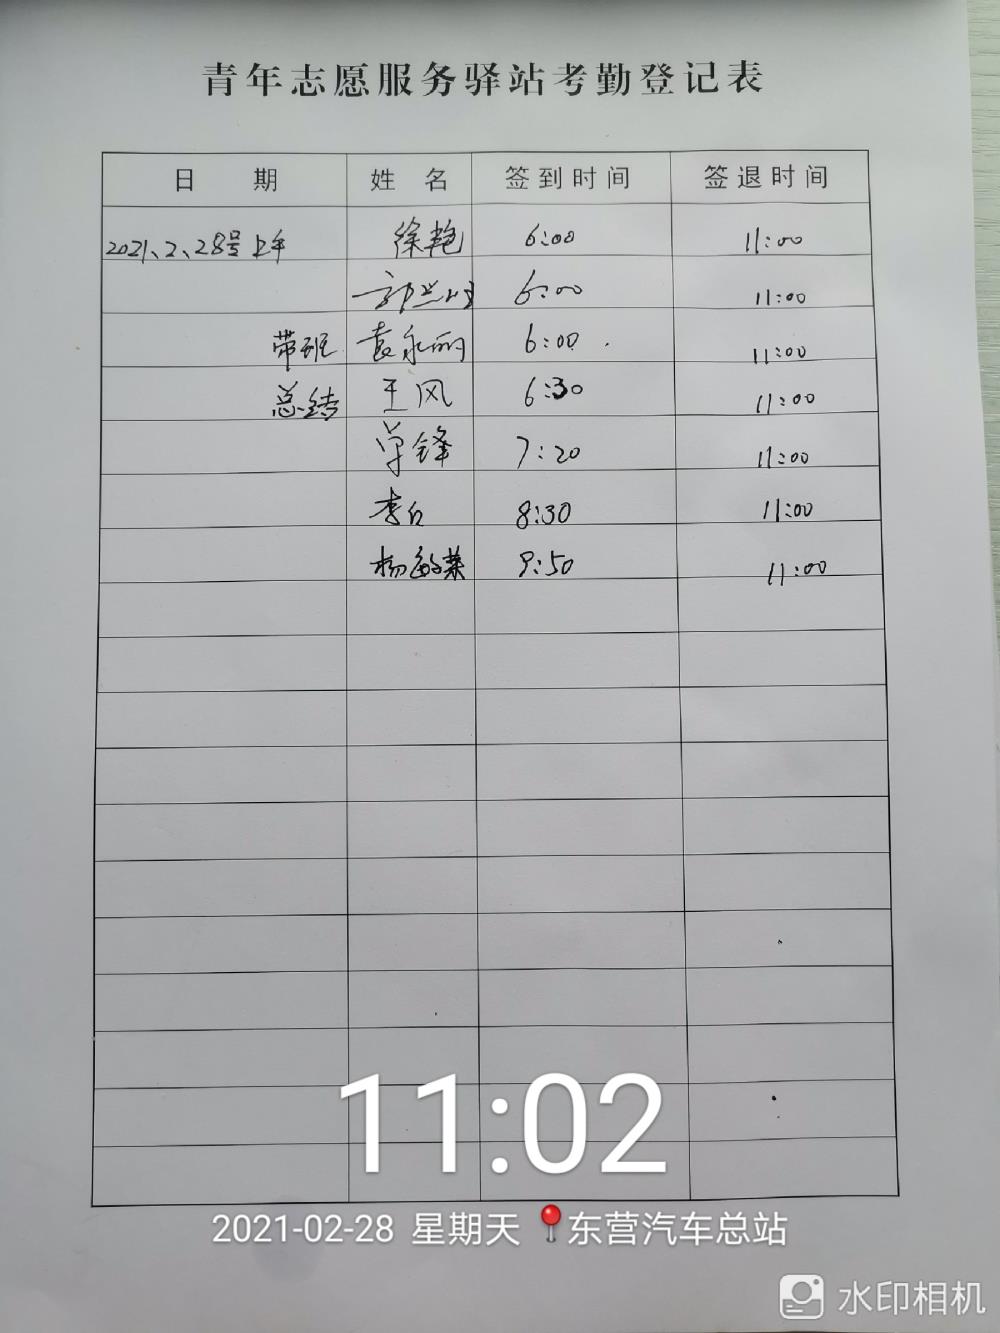 青年志愿服务驿站考勤登记表
日 期 姓 名 签到时间 签退时间
2021、2、28号上午 徐艳 6:00 11:00
郭兰 6:00 11:00
带班 袁永丽 6:00 11:00
总结 王风 6:30 11:00
单锋 7:20 11:00
李白 8:30 11:00
杨 9:50 11:00
11:02
2021-02-28 星期天 东营汽车总站
水印相机